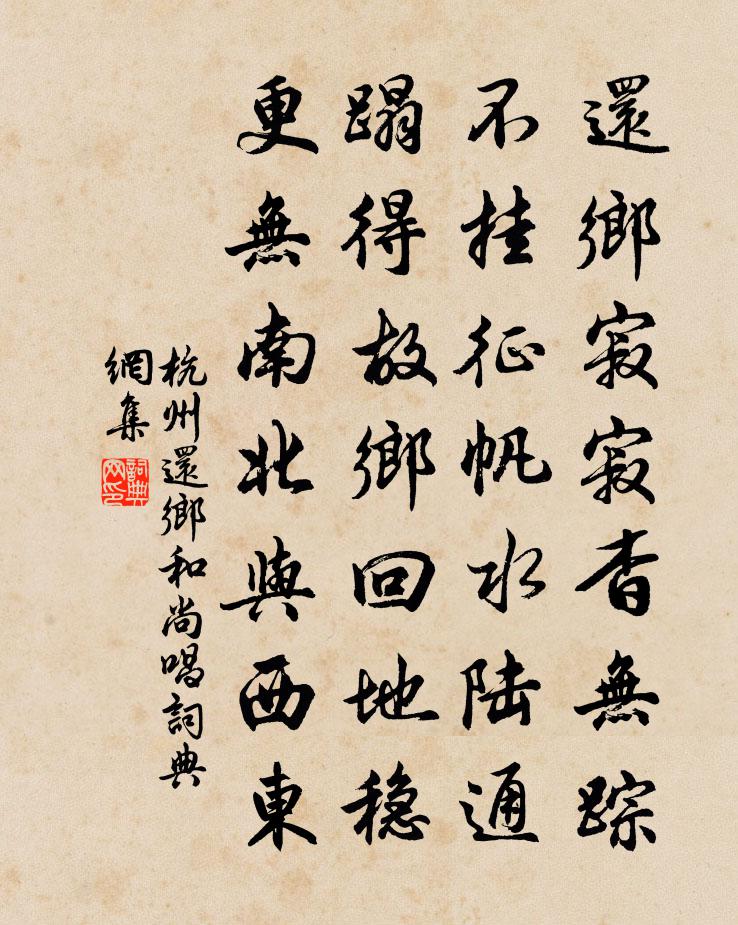 還鄉寂寂杳無踪
不挂征帆水陆通
蹋得故鄉回地稳
更無南北與西東
杭州還鄉和尚唱詞典
網集
詞典
网印